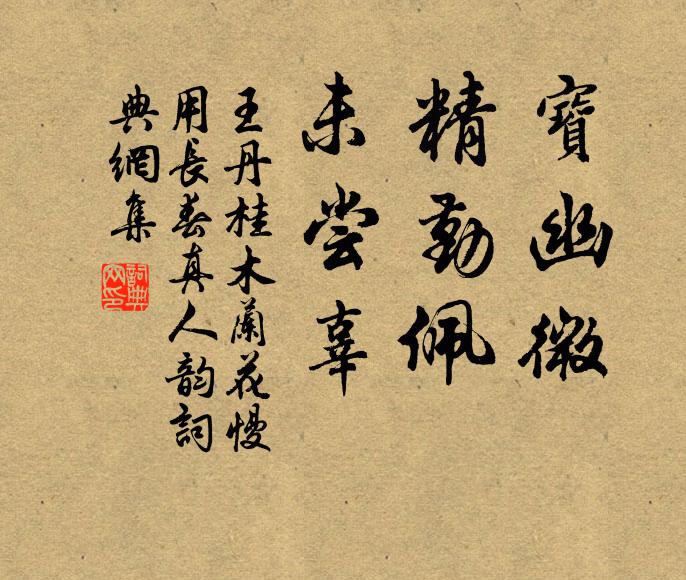 寶幽微
精勤佩
未尝辜
王丹桂木蘭花慢
用長春真人韵詞
典網集
詞典
网印